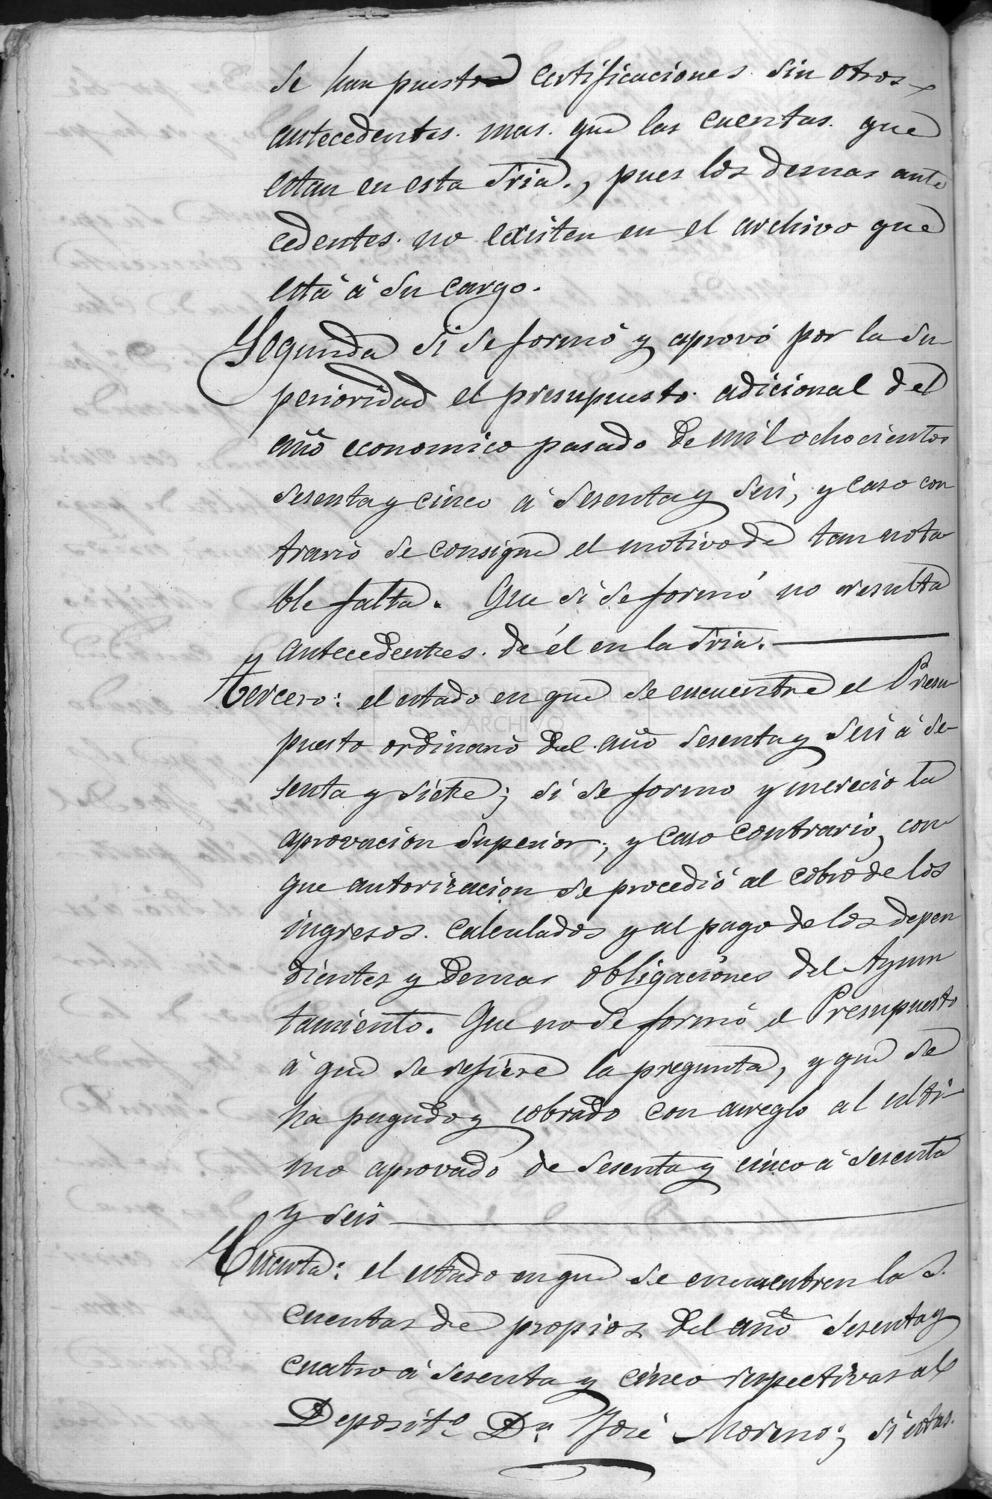 se han puesto certificaciones sin otros
antecedentes. mas. que las cuentas. que
estan en esta Sria., pues los demas ante
cedentes. no existen en el archivo que
está á su cargo.
Segunda si se formó y aprovó por la su
perioridad el presupuesto adicional del
año economico pasado de mil ochocientos
sesenta y cinco á sesenta y seis, y caso con
trario se consigne el motivo de tan nota
ble falta. Que si se formó no resulta
antecedentes. de él en la Sria.
tercero: el estado en que se encuentre el Presu
puesto ordinario del año sesenta y seis á se
senta y siete; si se formo y merecio la
aprovacion superior; y caso contrario, con
que autorizacion se procedió al cobro de los
ingresos. calculados y al pago de los depen
dientes y demas obligaciones del Ayun
tamiento. Que no se formó el Presupuesto
á que se refiere la pregunta, y que se
ha pagado y cobrado con arreglo al ulti-
mo aprovado de sesenta y cinco á sesenta
y seis
Cuarta: el estado en que se encuentren las.
cuentas de propios del año sesenta y
cuatro á sesenta y cinco respectivas al
Deposito. Dn. José Moreno; si estas.
ARCHIVO